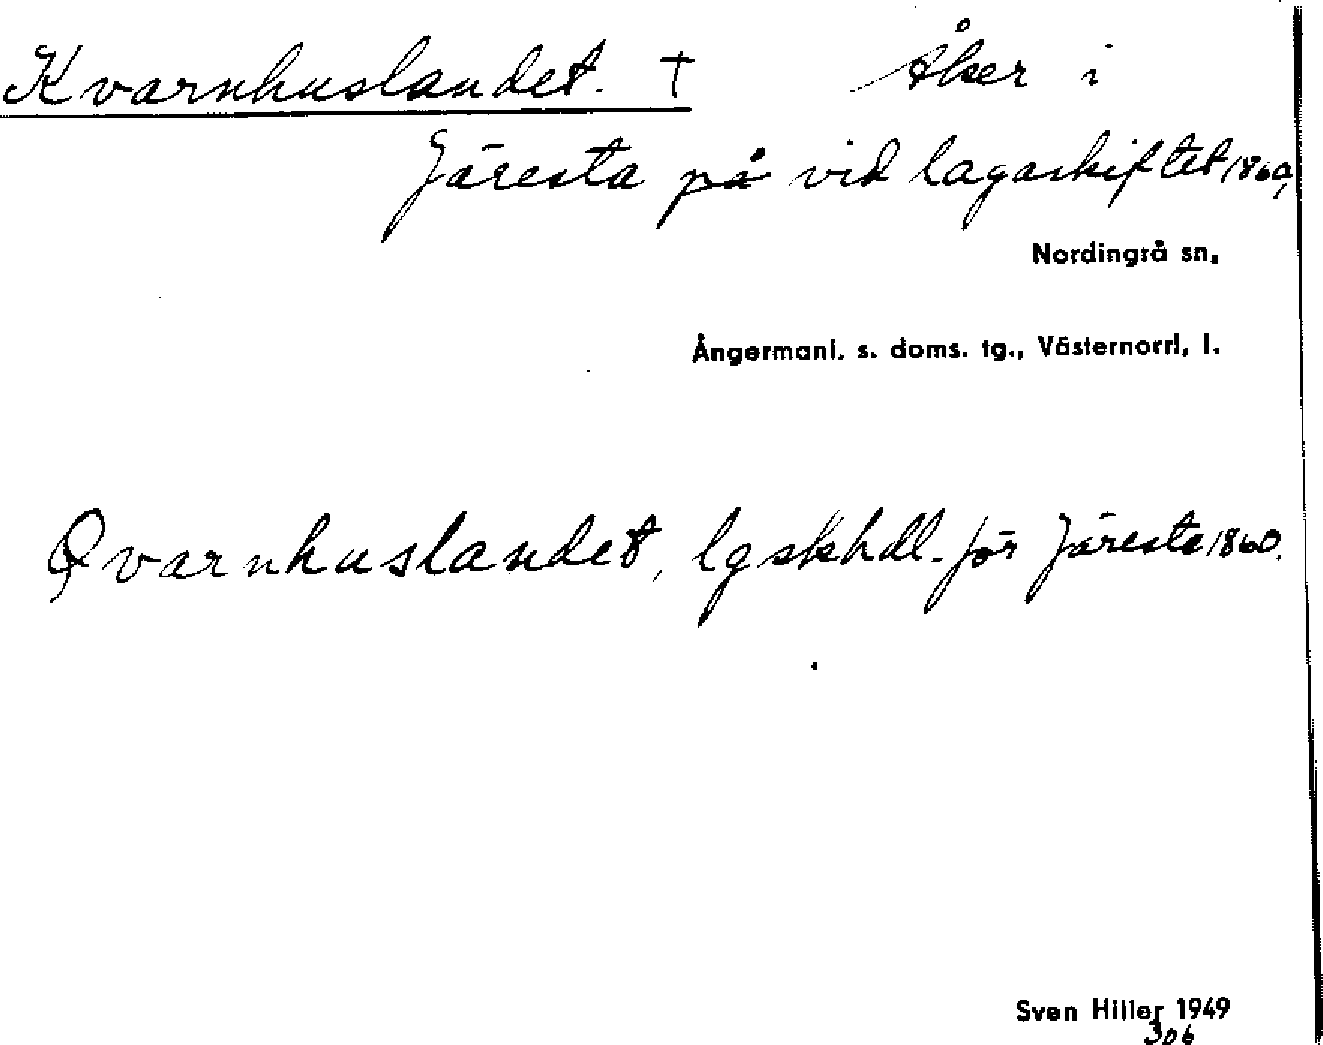 Kvarnhuslandet. † Åker i
Järesta på vid lagaskiftet 1860,
Nordingrå sn,
Ångermanl. s. doms. tg., Västernorrl, l.
Qvarnhuslandet, lgskhdl. för Järesta 1860.
Sven Hiller 1949
306